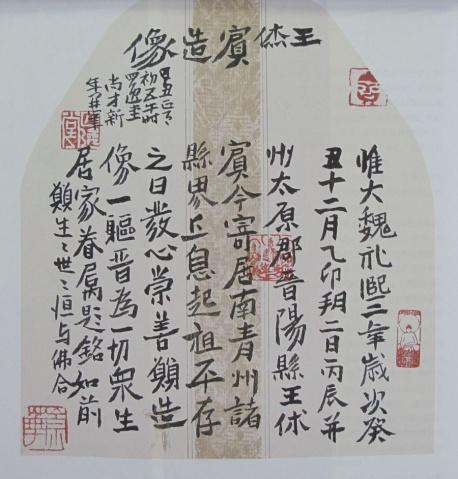 王烋賓造像
惟大魏熙三年歲次癸
丑十二月乙卯朔二日丙辰并
州太原郡晉陽縣王休
賓今寄居南青州諸
縣界丘息起祖平存
之日發心崇善願造
像一軀晉為一切眾生
居家眷属題銘如前
願生〻世〻恒与佛合
丑正月
初五午時
尚才新
年